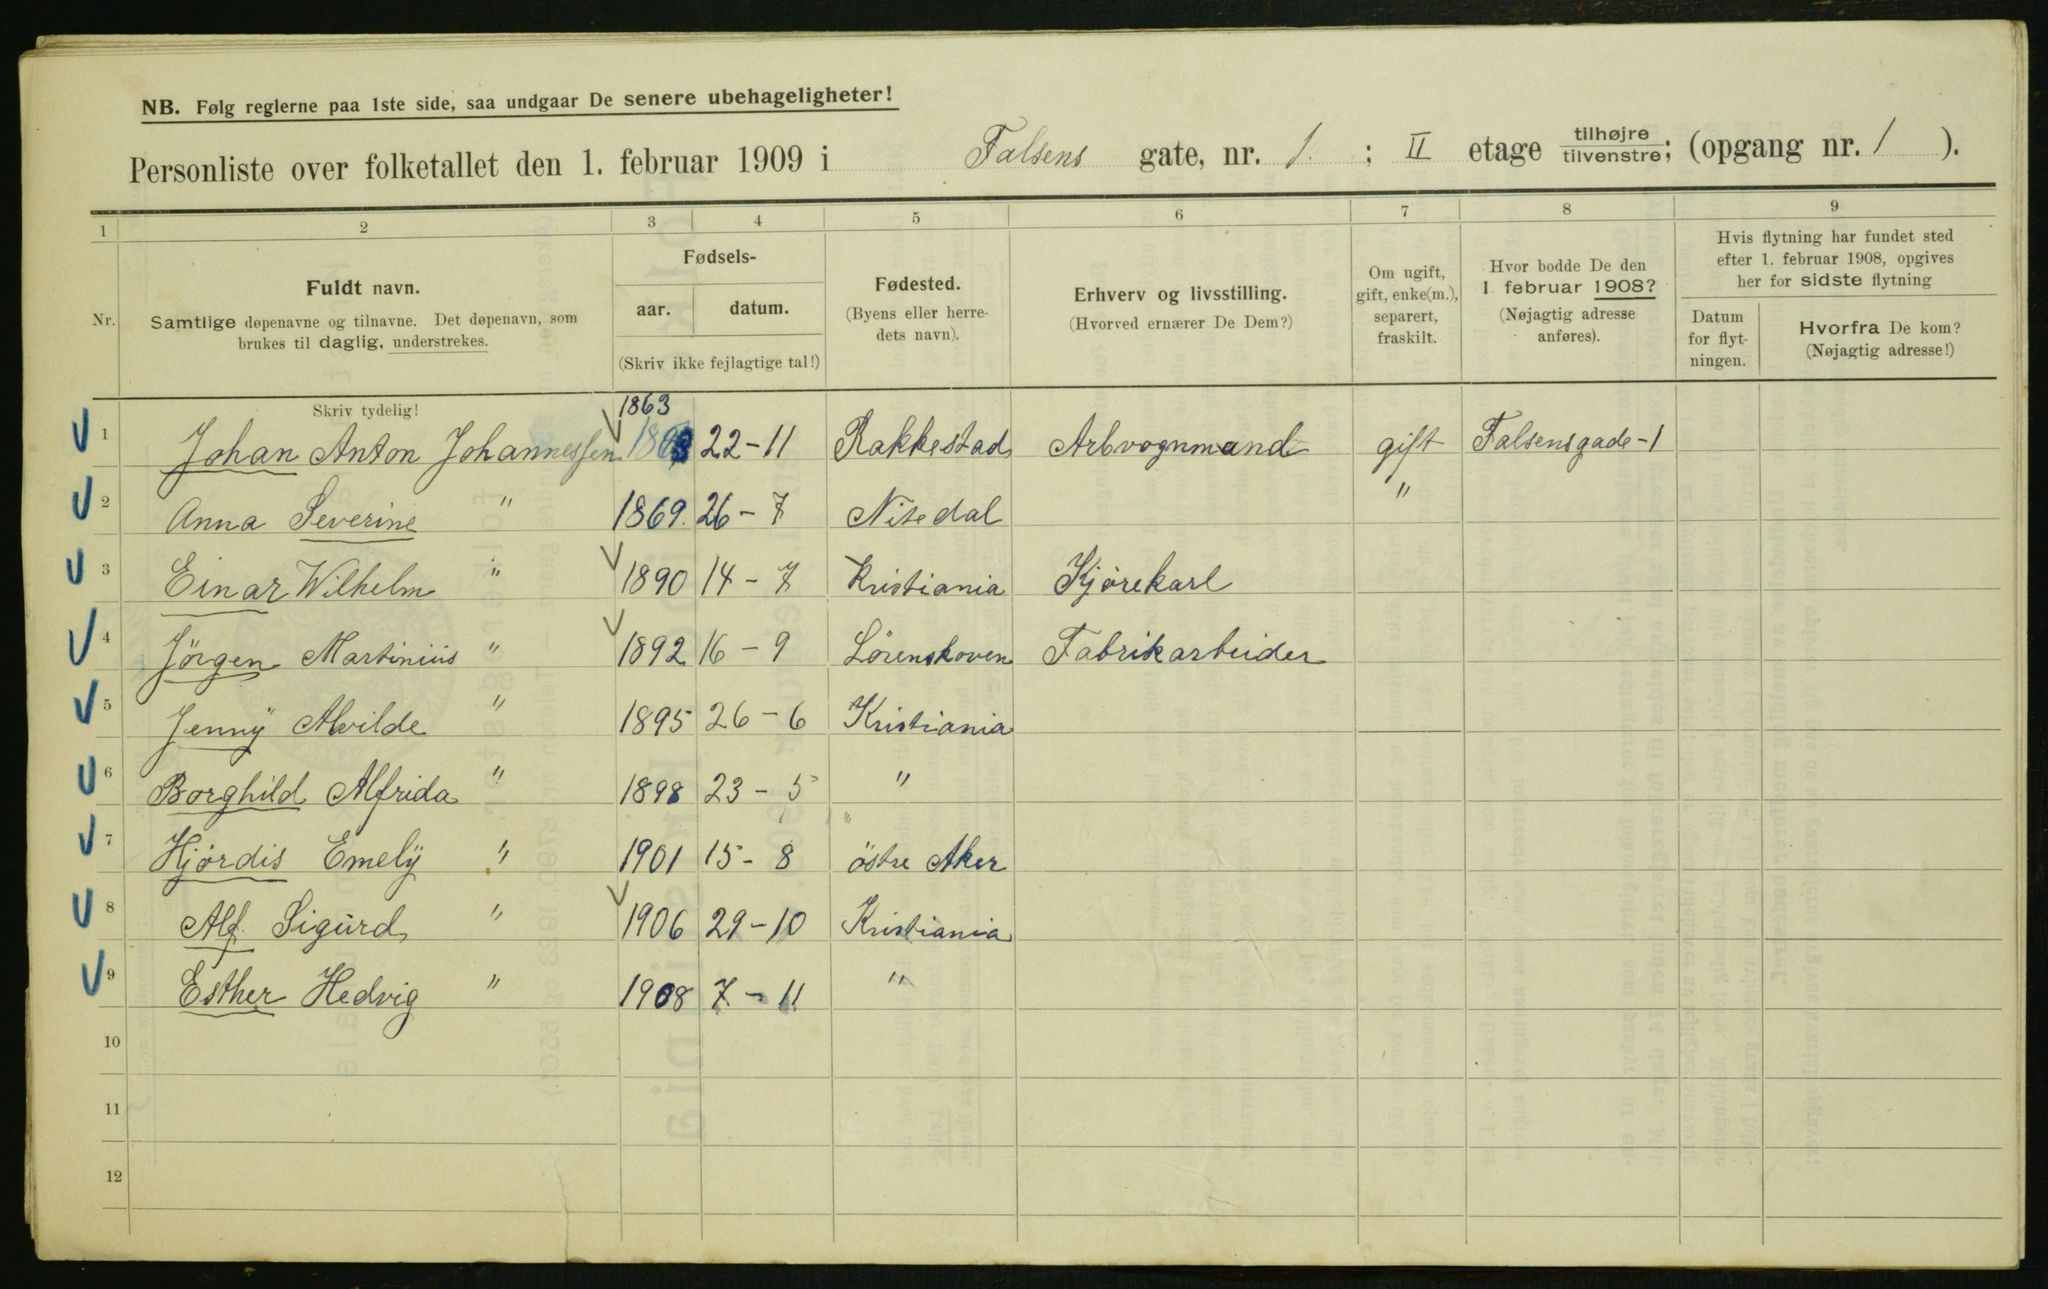 NB. Følg reglerne paa 1ste side, saa undgaar De senere ubehageligheter!
Personliste over folketallet den 1. februar 1909 i Falsens gate, nr. 1. ; II etage tilhøjre tilvenstre; (opgang nr. 1 ).
1 2 3 4 5 6 7 8 9
Nr.
Fuldt navn.
Samtlige døpenavne og tilnavne. Det døpenavn, som
brukes til daglig, understrekes.
Skriv tydelig!
Fødsels-
aar. datum.
(Skriv ikke fejlagtige tal!)
Fødested.
(Byens eller herre-
dets navn).
Erhverv og livsstilling.
(Hvorved ernærer De Dem?)
Om ugift,
gift, enke(m.),
separert,
fraskilt.
Hvor bodde De den
1 februar 1908?
(Nøjagtig adresse
anføres).
Hvis flytning har fundet sted
efter 1. februar 1908, opgives
her for sidste flytning
Datum
for flyt-
ningen.
Hvorfra De kom?
(Nøjagtig adresse!)
1863
1 Johan Anton Johannessen 1863 22-11 Rakkestad Arbvognmand gift Falsensgade-1
2 Anna Severine " 1869. 26-7 Nitedal "
3 Einar Wilhelm " 1890 14-7 Kristiania Kjørekarl
4 Jörgen Martinius " 1892 16-9 Lørenskoven Fabrikarbeider
5 Jenny Alvilde " 1895 26-6 Kristiania
6 Borghild Alfrida " 1898 23-5 "
7 Hjørdis Emely " 1901 15-8 östre Aker
8 Alf. Sigurd " 1906 29-10 Kristiania
9 Esther Hedvig " 1908 7-11 "
10
11
12